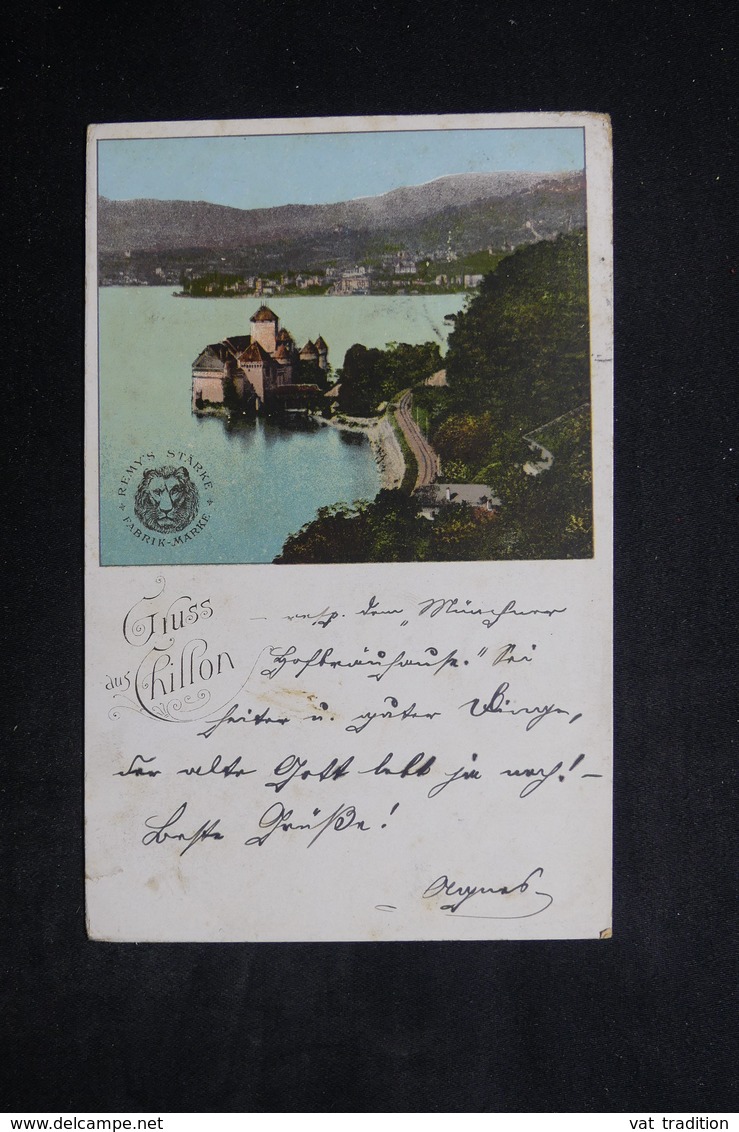 REMY'S STÄRKE
FABRIK-MARKE
Gruss
aus Chillon
– resp. dem "Münchner
Hofbräuhause." Sei
heiter u. guter Dinge,
der alte Gott lebt ja noch! –
Beste Grüße!
Agnes
www.delcampe.net
vat tradition